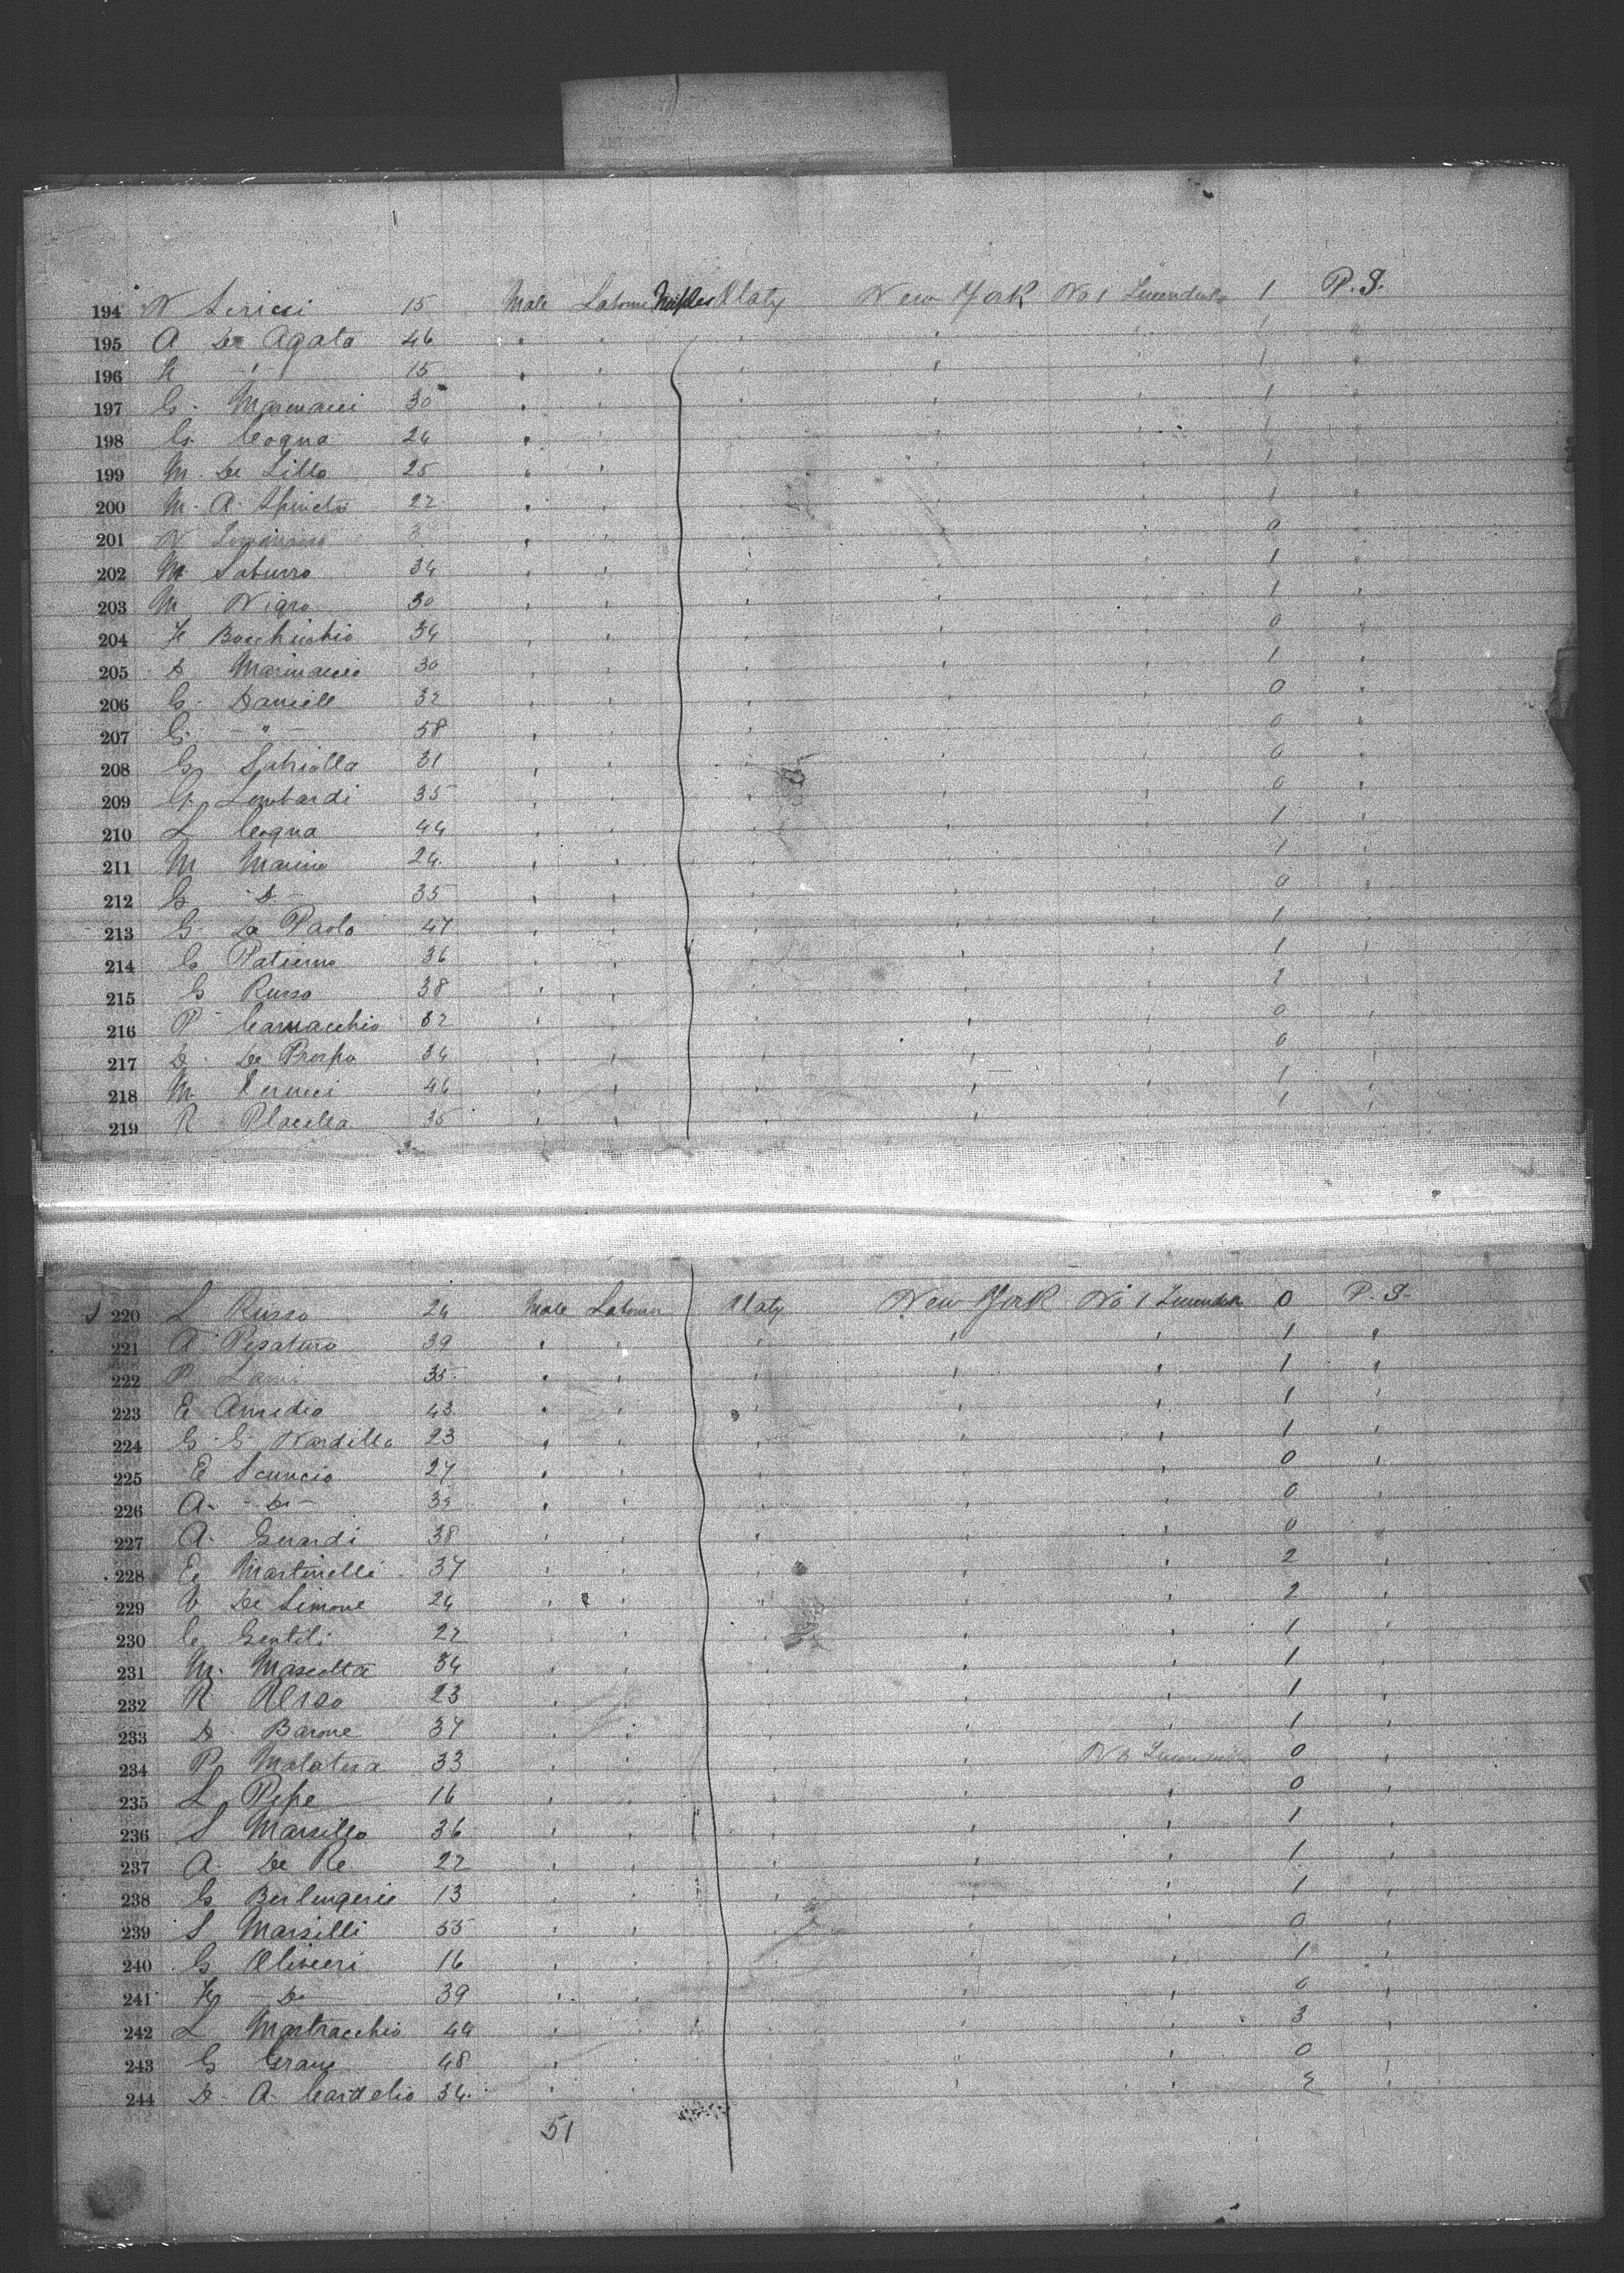 194 N 15 Male Naples Italy New York No 1 1 P. S.
195 A De Agata 46 " " " " " 1 "
196 15 " " " " " 1 "
197 G. Marinacci 30 " " " " " 1 "
198 G. Cogna 24 " " " " " 1 "
199 M. De Lillo 25 " " " " " 1 "
200 M. A. 22 " " " " " 1 "
201 N 0 "
202 M Saburro 34 " " " " " 1 "
203 M Nigro 30 " " " " " 1 "
204 F Bocchicchio 34 " " " " " 0 "
205 D Marinaccio 30 " " " " " 1 "
206 G. Daniele 32 " " " " " 0 "
207 G. - " - 58 " " " " " 0 "
208 G 31 " " " " " 0 "
209 G. Lombardi 35 " " " " " 0 "
210 L Cogna 44 " " " " " 1 "
211 M Marino 24 " " " " " 1 "
212 G - D - 35 " " " " " 0 "
213 G. De Paolo 47 " " " " " 1 "
214 G Patierno 36 " " " " " 1 "
215 G Russo 38 " " " " "
216 P Camacchio 32 " " " " " 0 "
217 D. De Prospo 34 " " " " " 0 "
218 M. Cerucci 46 " " " " " 1 "
219 R Placella 35 " " " " " 1 "
220 L Russo 24 Male Labourer Italy New York No 1 0 P. S.
221 A Pisaturo 39 " " " " " 1 "
222 P 35 " " " " " 1 "
223 E Amedio 43 " " " " " 1 "
224 G. G. Nardillo 23 " " " " " 1 "
225 E Scuncio 27 " " " " " 0 "
226 A. - D - " " " " " 0 "
227 A. Gerardi 38 " " " " " 0 "
228 E. Martinelli 37 " " " " " 2 "
229 V De Simone 24 " " " " " 2 "
230 C. Gentili 22 " " " " " 1 "
231 M. Mascotta 34 " " " " " 1 "
232 R 23 " " " " " 1 "
233 D. Barone 37 " " " " " 1 "
234 P. Malatesa 33 " " " " No 0 "
235 L Pepe 16 " " " " " 0 "
236 S Marsillo 36 " " " " " 1 "
237 A. De Re 22 " " " " " 1 "
238 G Berlingerie 13 " " " " " 1 "
239 S Marsilli 55 " " " " " 0 "
240 G Olivieri 16 " " " " " 1 "
241 F - D - 39 " " " " " 0 "
242 L Mastracchio 44 " " " " " 3 "
243 G Grane 48 " " " " " 0 "
244 D. A. Cardelio 34 " " " " " "
51